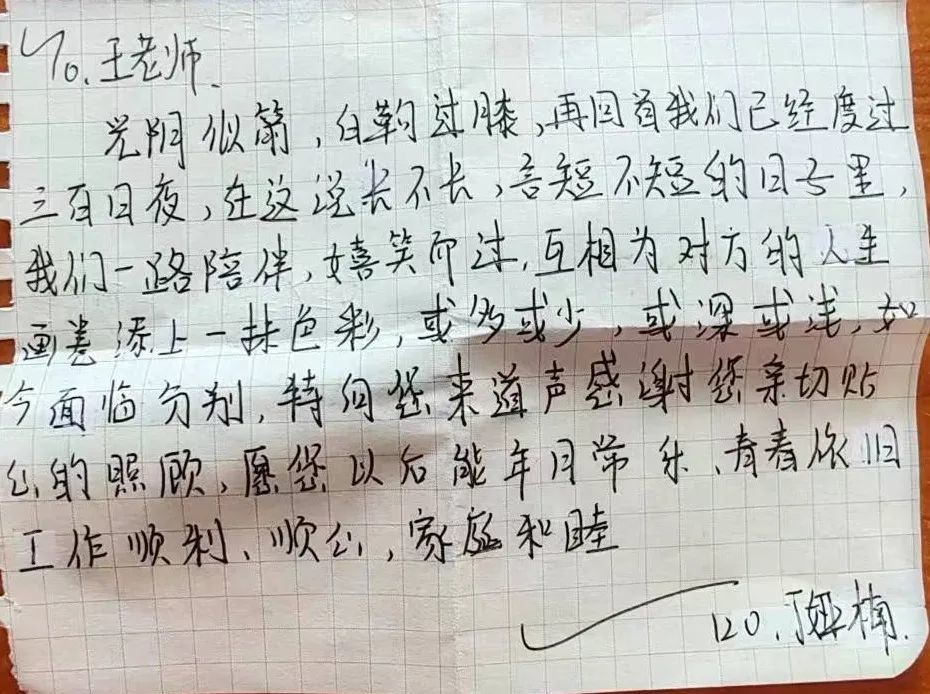 To. 王老师.
光阴似箭,白驹过膝,再回首我们已经度过
三百日夜,在这说长不长,言短不短的日子里,
我们一路陪伴,嬉笑而过,互相为对方的人生
画卷添上一抹色彩,或多或少,或深或浅,如
今面临分别,特向您来道声感谢您亲切贴
心的照顾,愿您以后能年月常乐、青春依旧
工作顺利、顺心,家庭和睦
120.丁娅楠.